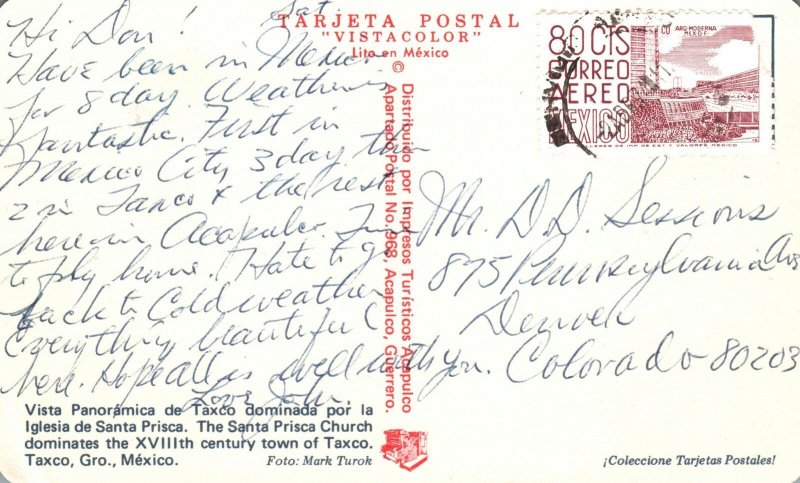 TARJETA POSTAL
"VISTACOLOR"
Lito en México
©
Sat
Hi Don!
Have been in Mexico
for 8 day. Weather is
fantastic. First in
Mexico City 3 day then
2 in Taxco & the rest
here in Acapulco. Time
to fly home. Hate to go
back to cold weather
Everything beautiful
here. Hope all is well with you.
Love John.
Distribuido por Impresos Turísticos Acapulco
Apartado Postal No. 968, Acapulco, Guerrero.
80 CTS
CORREO
AEREO
MEXICO
ARQ. MODERNA
MEX. D.F.
TALLERES DE IMP. DE EST. Y VALORES MEXICO
Mr. D.D. Sessions
895 Pennsylvania Ave
Denver
Colorado 80203
Vista Panorámica de Taxco dominada por la
Iglesia de Santa Prisca. The Santa Prisca Church
dominates the XVIIIth century town of Taxco.
Taxco, Gro., México.
Foto: Mark Turok
¡Coleccione Tarjetas Postales!